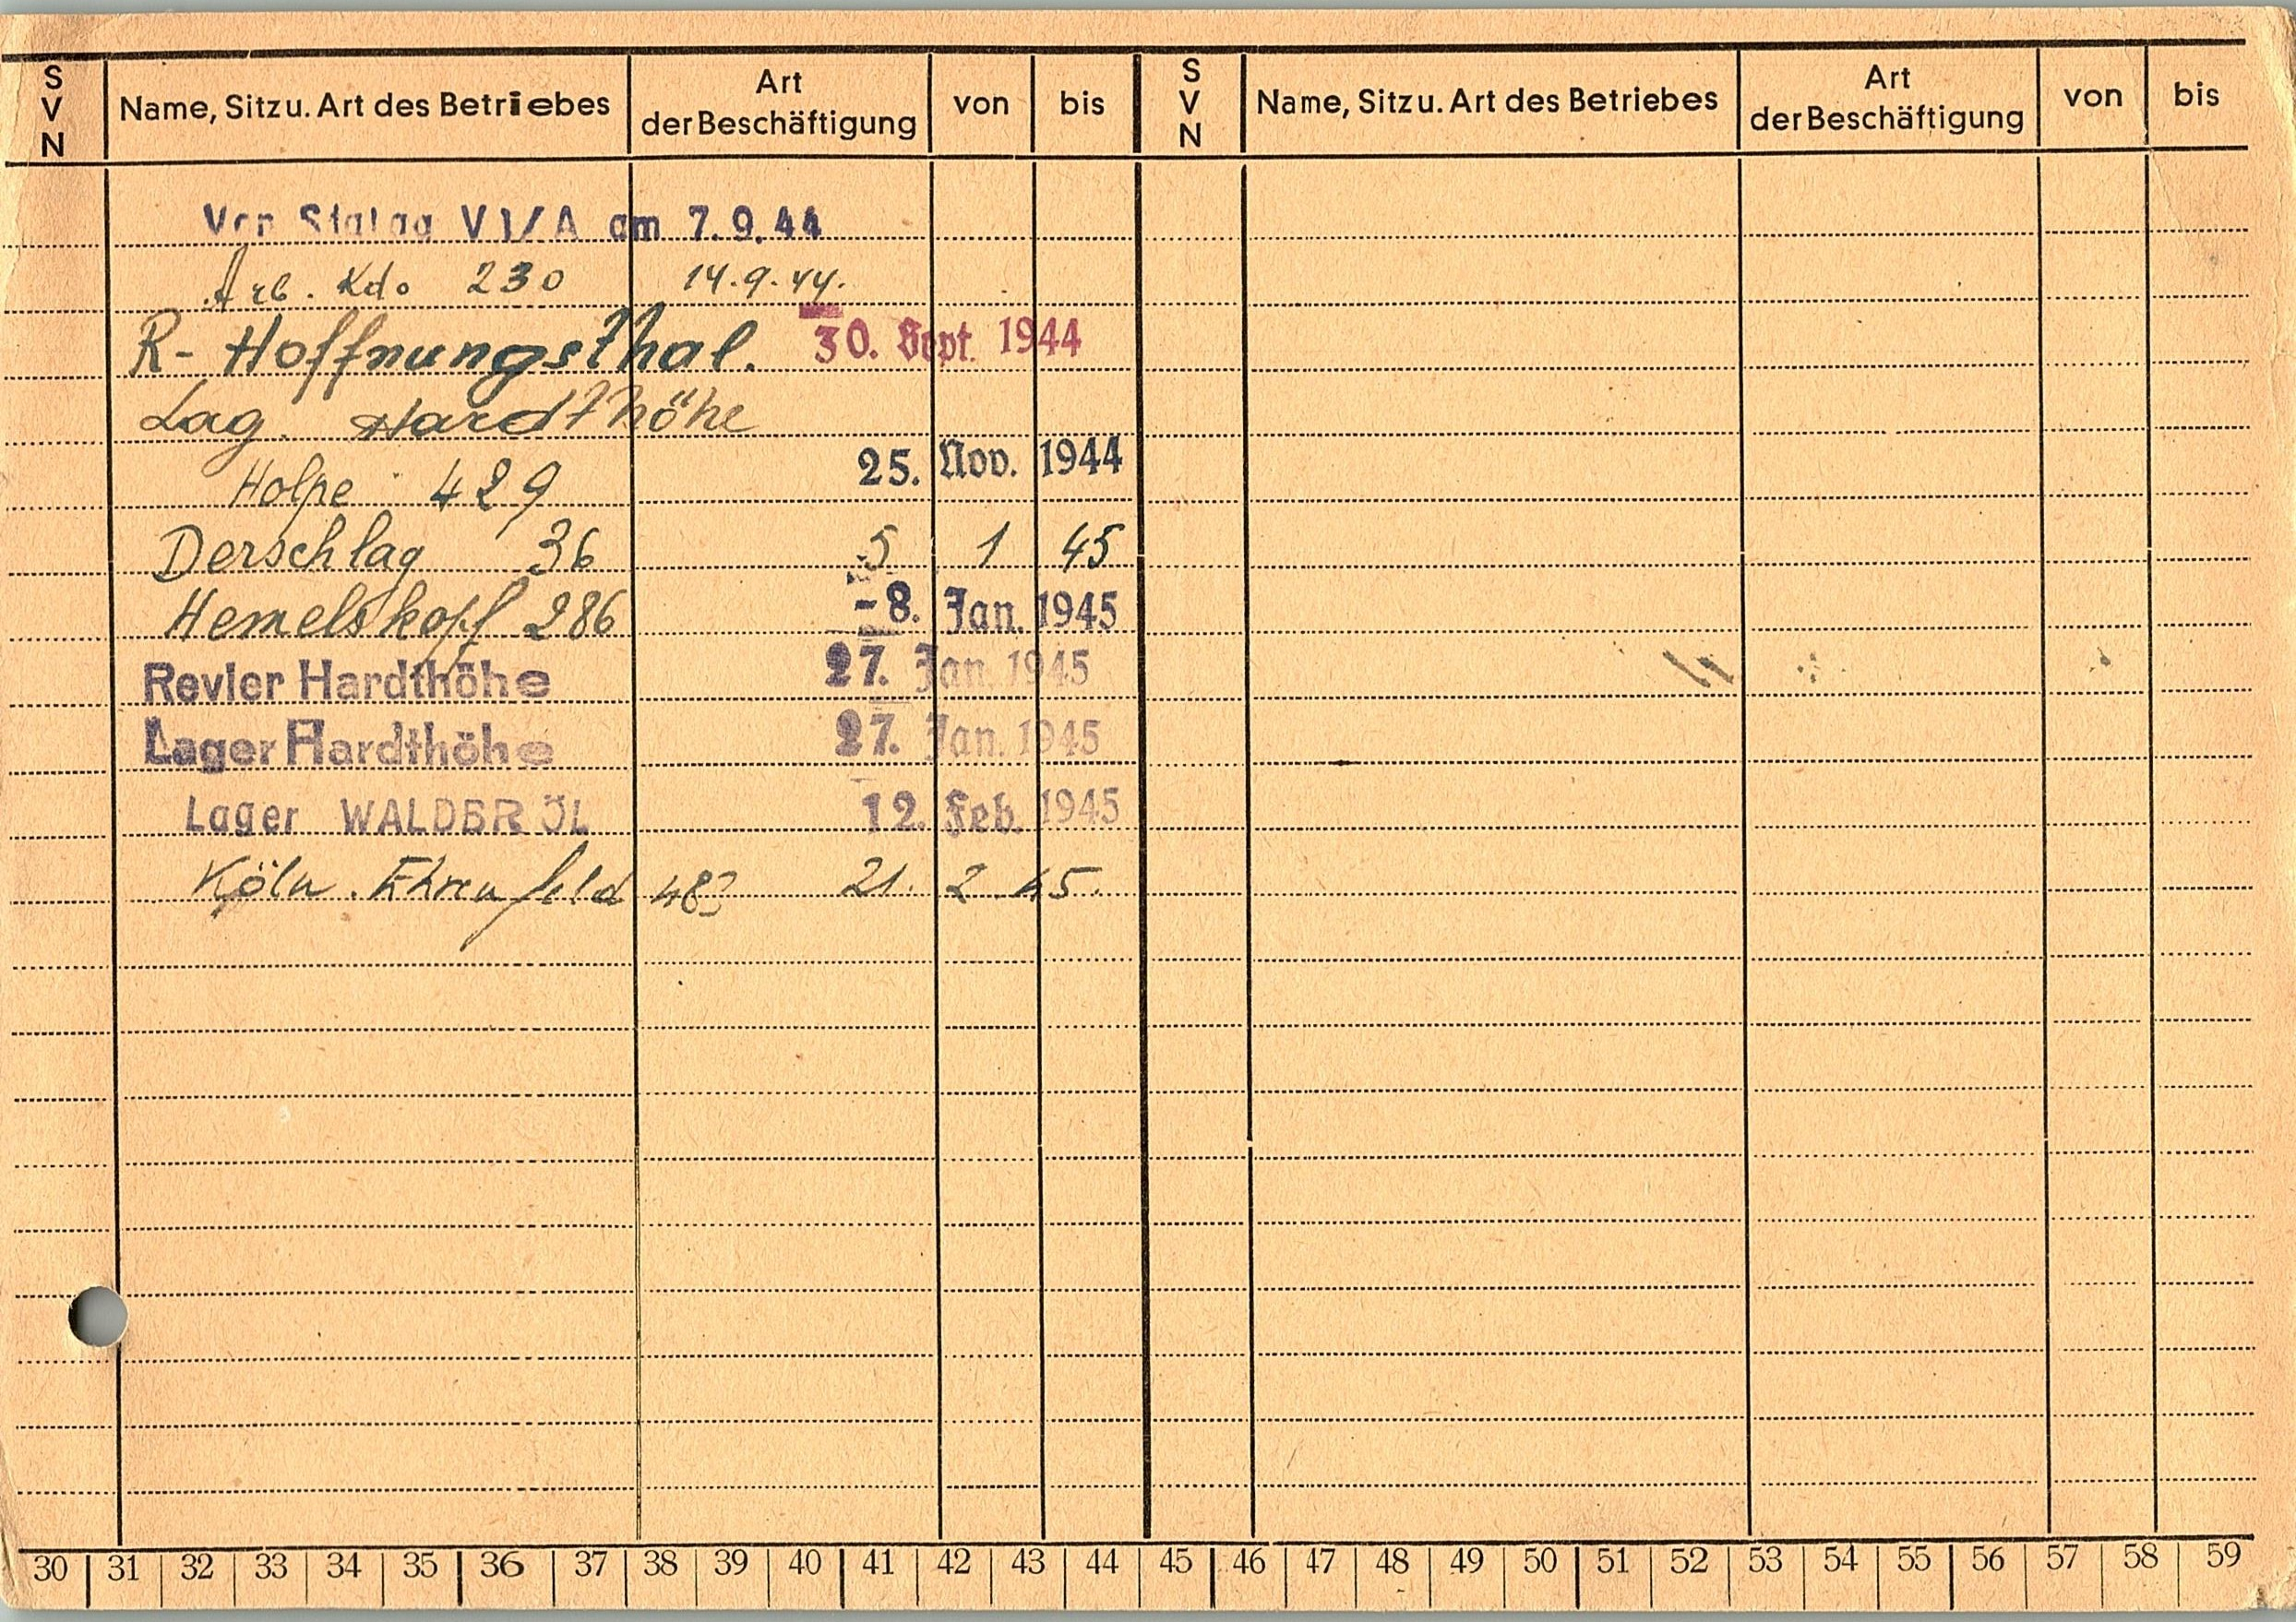 S V N Name, Sitz u. Art des Betriebes Art der Beschäftigung von bis S V N Name, Sitz u. Art des Betriebes Art der Beschäftigung von bis
Von Stalag VI/A am 7.9.44
Arb. Kdo 230 14.9.44.
R- Hoffnungsthal. 30. Sept. 1944
Lag. Hardthöhe
Holpe 429 25. Nov. 1944
Derschlag 36 5 1 45
Hemelskopf 286 -8. Jan. 1945
Revier Hardthöhe 27. Jan. 1945
Lager Hardthöhe 27. Jan. 1945
Lager WALDBRÖL 12. Feb. 1945
Köln. Ehrenfeld 21. 2 45.
30 31 32 33 34 35 36 37 38 39 40 41 42 43 44 45 46 47 48 49 50 51 52 53 54 55 56 57 58 59